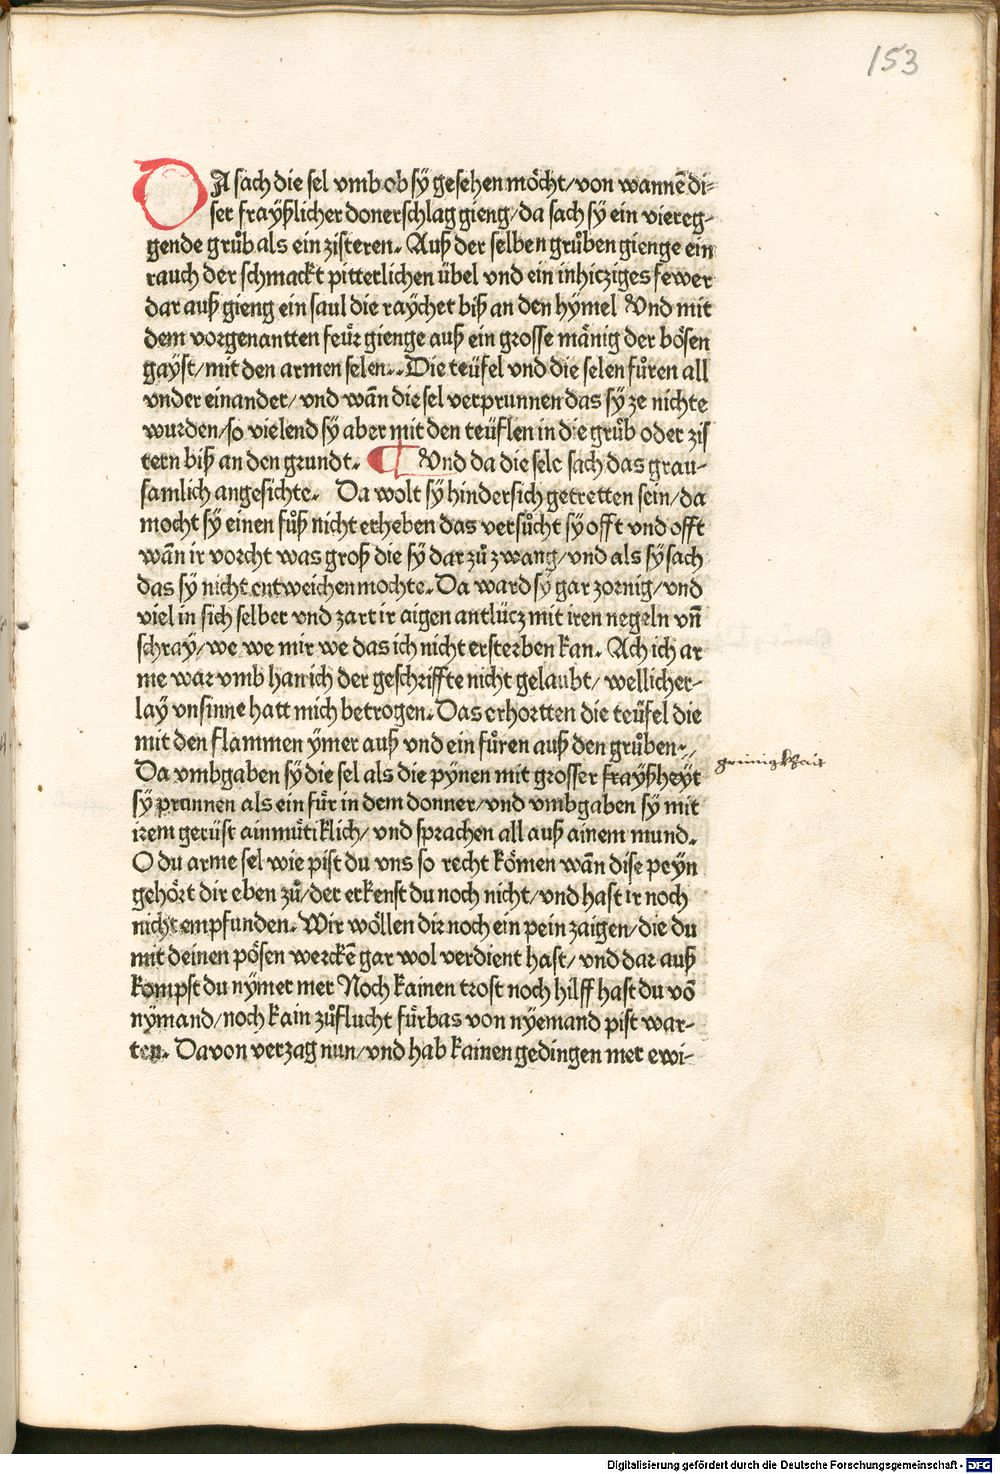 153
DA sach die sel vmb ob sÿ gesehen möcht/ von wannē di-
ser fraÿßlicher donerschlag gieng/ da sach sÿ ein viereg-
gende grůb als ein zisteren. Auß der selben grůben gienge ein
rauch der schmackt pitterlichen übel vnd ein inhicziges fewer
dar auß gieng ein saul die raÿchet biß an den hÿmel Vnd mit
dem vorgenantten feür gienge auß ein grosse mänig der bösen
gaÿst/ mit den armen selen.. Die teüfel vnd die selen fůren all
vnder einander/ vnd wān die sel verprunnen das sÿ ze nichte
wurden/ so vielend sÿ aber mit den teüflen in die grůb oder zis
tern biß an den grundt. ¶ Vnd da die sele sach das grau-
samlich angesichte. Da wolt sÿ hindersich getretten sein/ da
mocht sÿ einen fůß nicht erheben das versůcht sÿ offt vnd offt
wān ir vorcht was groß die sÿ dar zů zwang/ vnd als sÿ sach
das sÿ nicht entweichen mochte. Da ward sÿ gar zornig/ vnd
viel in sich selber vnd zart ir aigen antlücz mit iren negeln vn̄
schraÿ/ we we mir we das ich nicht ersterben kan. Ach ich ar
me war vmb han ich der geschriffte nicht gelaubt/ wellicher-
laÿ vnsinne hatt mich betrogen. Das erhortten die teüfel die
mit den flammen ÿmer auß vnd ein fůren auß den grůben.,
grimigkhait
Da vmbgaben sÿ die sel als die pÿnen mit grosser fraÿßheÿt
sÿ prannen als ein für in dem donner/ vnd vmbgaben sÿ mit
irem gerüst ainmütiklich/ vnd sprachen all auß ainem mund.
O du arme sel wie pist du vns so recht kömen wān dise peÿn
gehört dir eben zů/ der erkenst du noch nicht/ vnd hast ir noch
nicht empfunden. Wir wöllen dir noch ein pein zaigen/ die du
mit deinen pösen werckē gar wol verdient hast/ vnd dar auß
kompst du nÿmer mer Noch kainen trost noch hilff hast du vō
nÿmand/ noch kain zůflucht fürbas von nÿemand pist war-
ten. Davon verzag nun/ vnd hab kainen gedingen mer ewi-
Digitalisierung gefördert durch die Deutsche Forschungsgemeinschaft - DFG